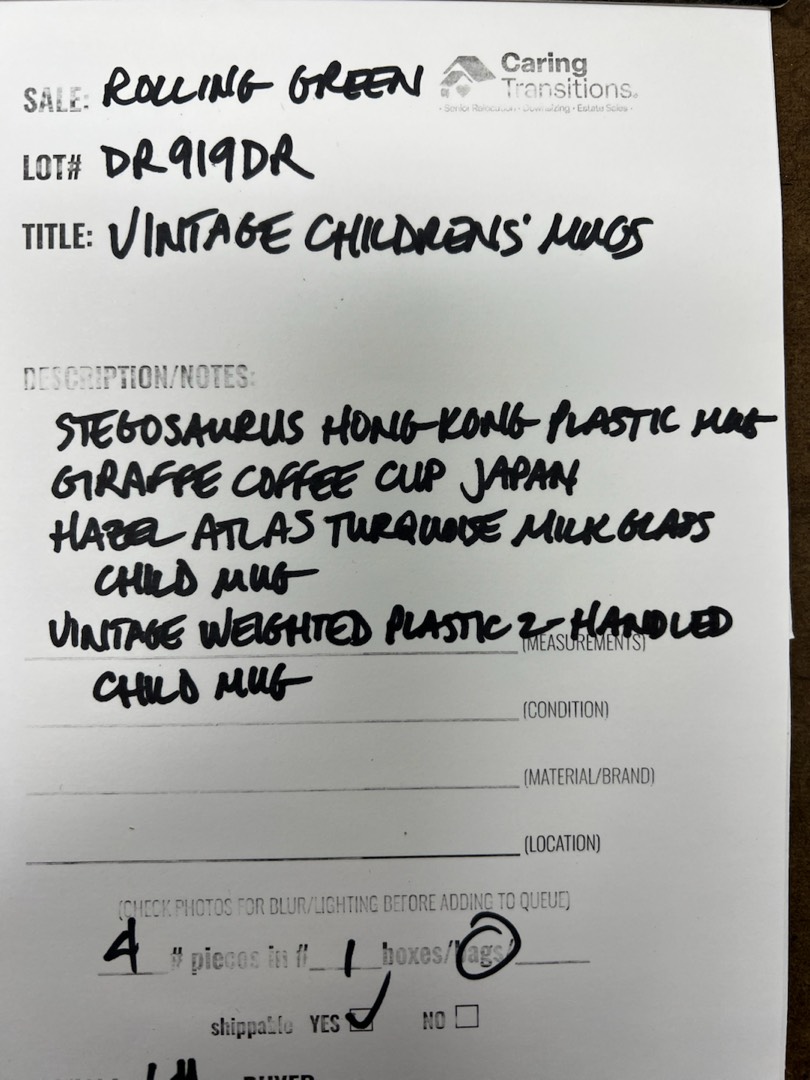 SALE: ROLLING GREEN
Caring
Transitions.
- Senior Relocation - Downsizing - Estate Sales -
LOT# DR919DR
TITLE: VINTAGE CHILDRENS' MUGS
DESCRIPTION/NOTES:
STEGOSAURUS HONG-KONG PLASTIC MUG
GIRAFFE COFFEE CUP JAPAN
HAZEL ATLAS TURQUOISE MILK GLASS
CHILD MUG
VINTAGE WEIGHTED PLASTIC 2-HANDLED
(MEASUREMENTS)
CHILD MUG
(CONDITION)
(MATERIAL/BRAND)
(LOCATION)
(CHECK PHOTOS FOR BLUR/LIGHTING BEFORE ADDING TO QUEUE)
4 # pieces in # 1 boxes/bags/
shippable YES NO
BUYER